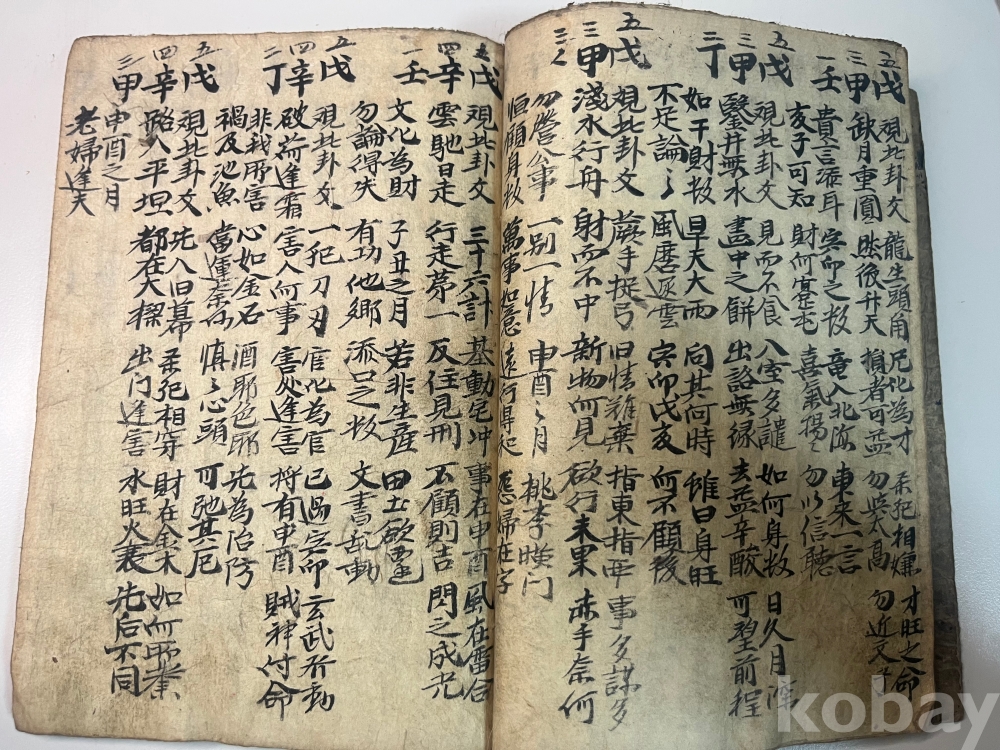 五戊 視此卦文 龍生頭角 化為才 柔犯相嫌 才旺之命
三甲 缺月重圓 然後升天 損者可益 勿 太高 勿近文
一壬 貴言添耳 寅卯之数 竜入北海 東來一言
亥子可知 財何蹇屯 喜氣揚々 勿以信聽
五戊 視此卦文 見而不食 八室多譴 如何身数 日久月深
三甲 鑿井無水 畫中之餅 出路無緣 去益辛酸 可望前程
丁 如干財数 旱天大雨 向其何時 雖曰身旺
不足論々 風磨 雲 寅卯戌亥 而不顧後
五戊 視此卦文 手挽弓 旧情難棄 指東指西 事多謀多
三甲 淺水行舟 射而不中 新物何見 欲行未果 赤手奈何
三 勿營公事 一别一情 申酉之月 桃李暎门
恒顧身数 萬事如意 遠行得 婦在
五戊 視此卦文 三十六計 基動宅冲 事在申酉 風在雷合
四辛 雲馳日走 行走第一 反住見刑 不顧則吉 閃之成光
一壬 文化為財 子丑之月 若非生産 田土欲
勿論得失 有功他鄉 添口之数 文書乱動
五戊 視此卦文 一犯刀刃 官化為官 已過寅卯 玄武行動
四辛 破 逢霜 害人何事 害处逢害 将有申酉 賊神付命
二丁 非我所害 心如金石 酒耶色耶 先為治防
禍及池魚 當運 慎之心頭 可 其厄
五戊 視此卦文 先入旧幕 柔犯相穿 財在金木 如何
四辛 路人平坦 都在大 出门逢害 水旺火衰 先后不同
三甲 申酉之月
老婦逢夫
kobay